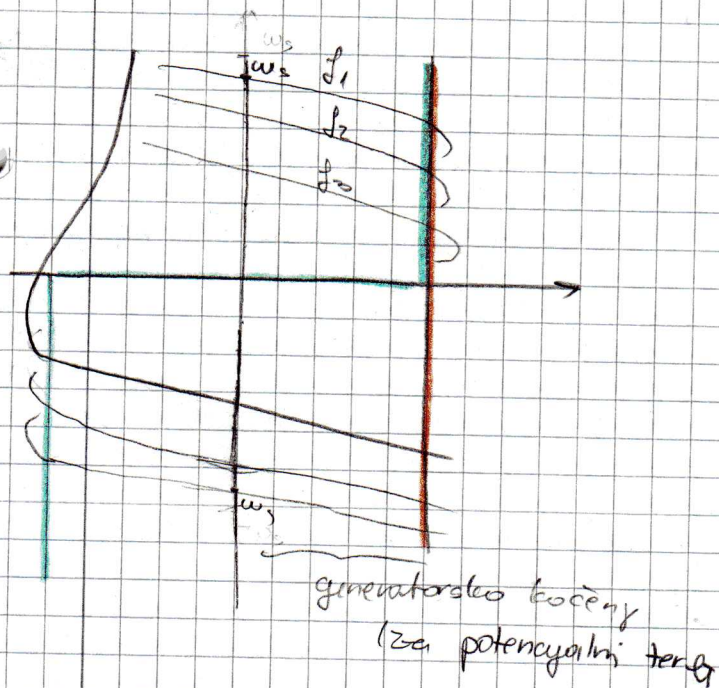 ωs
ωs f1
f2
f3
ωs
generatorsko kočenj
(za potencyalni teret